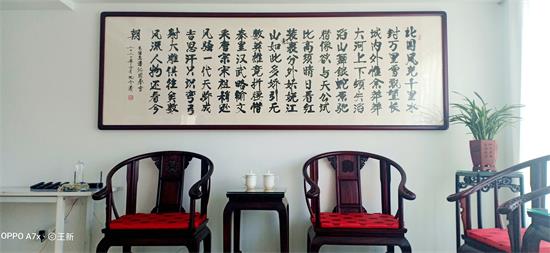 北国風光千里冰
封万里雪飄望長
城内外惟余莽莽
大河上下頓失滔
滔山舞銀蛇原馳
蜡像欲与天公試
比高須晴日看红
裝素裹分外妖娆江
山如此多娇引无
数英雄竞折腰惜
秦皇汉武略输文
采唐宗宋祖稍逊
风骚一代天骄成
吉思汗只识弯弓
射大雕俱往矣数
风流人物还看今
朝
OPPO A7x ©王新